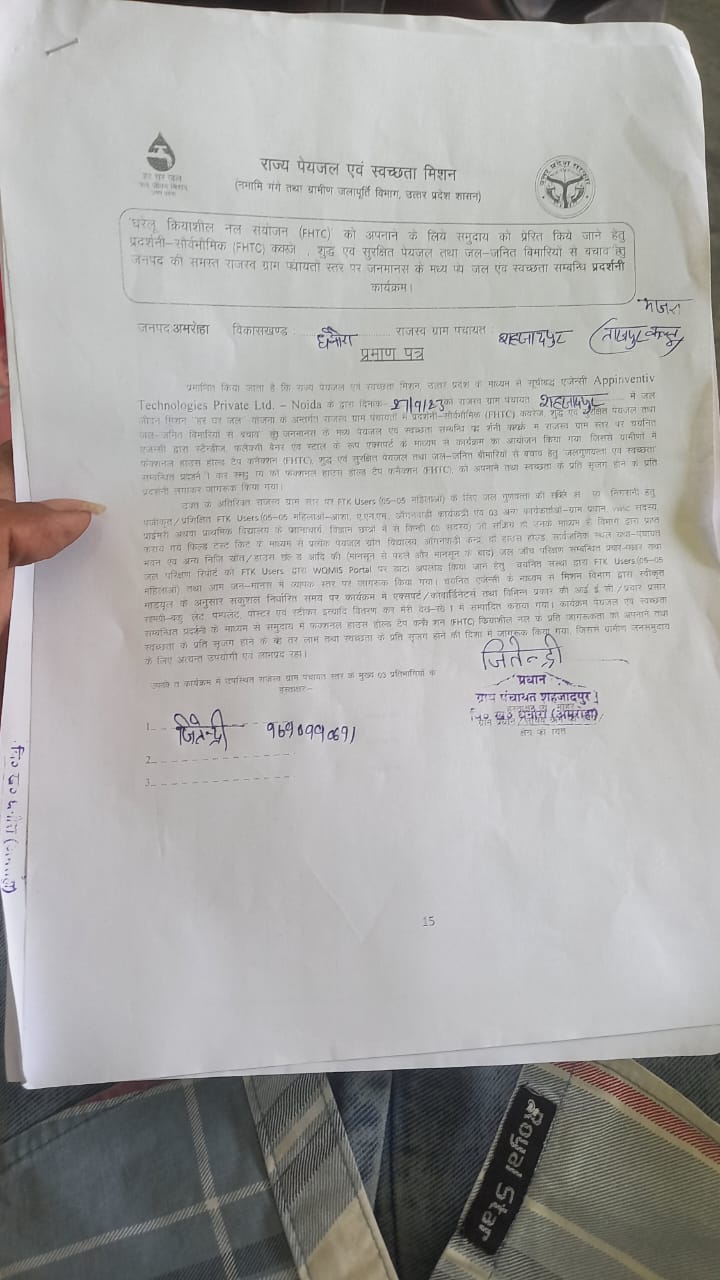 हर घर जल
जल जीवन मिशन
राज्य पेयजल एवं स्वच्छता मिशन
(नमामि गंगे तथा ग्रामीण जलापूर्ति विभाग, उत्तर प्रदेश शासन)
उत्तर प्रदेश सरकार
'घरेलू क्रियाशील नल सयोजन (FHTC)' को अपनाने के लिये समुदाय को प्रेरित किये जाने हेतु
प्रदर्शनी–सार्वभौमिक (FHTC) कवरेज , शुद्ध एवं सुरक्षित पेयजल तथा जल-जनित बिमारियों से बचाव हेतु
जनपद की समस्त राजस्व ग्राम पंचायतो स्तर पर जनमानस के मध्य पेय जल एवं स्वच्छता सम्बन्धि प्रदर्शनी
कार्यक्रम।
माजरा
जनपद:अमरोहा विकासखण्ड : धनौरा राजस्व ग्राम पंचायत : शहजादपुर
प्रमाण पत्र
प्रमाणित किया जाता है कि राज्य पेयजल एवं स्वच्छता मिशन, उत्तर प्रदेश के माध्यम से सूचीबद्ध एजेन्सी Appinventiv
Technologies Private Ltd. – Noida के द्वारा दिनांक- 27/9/23 को राजस्व ग्राम पंचायत शहजादपुर में जल
जीवन मिशन 'हर घर जल' योजना के अन्तर्गत राजस्व ग्राम पंचायतों में प्रदर्शनी–सार्वभौमिक (FHTC) कवरेज, शुद्ध एवं सुरक्षित पेयजल तथा
जल-जनित बिमारियों से बचाव हेतु जनमानस के मध्य पेयजल एवं स्वच्छता सम्बन्धि प्रदर्शनी कार्यक्रम में राजस्व ग्राम स्तर पर चयनित
एजेन्सी द्वारा स्टेनडीज, फलेक्सी बैनर एवं स्टाल के रूप एक्सपर्ट के माध्यम से कार्यक्रम का आयोजन किया गया जिससे ग्रामीणों में
फंक्शनल हाउस होल्ड टैप कनैक्शन (FHTC), शुद्ध एवं सुरक्षित पेयजल तथा जल-जनित बीमारियों से बचाव हेतु जलगुणवत्ता एवं स्वच्छता
सम्बन्धित प्रदर्शनी कर समुदाय को फंक्शनल हाउस होल्ड टैप कनैक्शन (FHTC), को अपनाने तथा स्वच्छता के प्रति सृजग होने के प्रति
प्रदर्शनी लगाकर जागरूक किया गया।
उक्त के अतिरिक्त राजस्व ग्राम स्तर पर FTK Users (05-05 महिलाओं) के लिए जल गुणवत्ता की निगरानी हेतु
पंजीकृत/प्रशिक्षित FTK Users(05-05 महिलाओं-आशा, ए.एन.एम. आँगनवाड़ी कार्यकत्री एवं 03 अन्य कार्यकर्ताओं-ग्राम प्रधान, VWSC सदस्य
प्राईमरी अथवा प्राथमिक विद्यालय के प्रधानाचार्य, विज्ञान छात्रों में से किन्ही 05 सदस्य) जो सक्रिय हो उनके माध्यम से विभाग द्वारा प्राप्त
कराये गये फिल्ड टेस्ट किट के माध्यम से प्रत्येक पेयजल स्रोत विद्यालय, आंगनवाड़ी केन्द्र, दो हाउस होल्ड, सार्वजनिक स्थल यथा-पंचायत
भवन एवं अन्य निजि स्रोत/हाउस होल्ड आदि की (मानसून से पहले और मानसून के बाद) जल जाँच परिक्षण सम्बन्धित प्रचार-प्रसार तथा
जल परिक्षण रिपोर्ट को FTK Users द्वारा WQMIS Portal पर डाटा अपलोड किया जाने हेतु चयनित संस्था द्वारा FTK Users(05-05
महिलाओं) तथा आम जन-मानस में व्यापक स्तर पर जागरूक किया गया। चयनित एजेन्सी के माध्यम से मिशन विभाग द्वारा स्वीकृत
माड्यूल के अनुसार सकुशल निर्धारित समय पर कार्यक्रम में एक्सपर्ट/कोर्डिनेटर्स तथा विभिन्न प्रकार की आई ई सी/प्रचार प्रसार
सामग्री- पम्पलेट, पोस्टर एवं स्टीकर इत्यादि वितरण कर मेरी देख-रेख में सम्पादित कराया गया। कार्यक्रम पेयजल एवं स्वच्छता
सम्बन्धित प्रदर्शनी के माध्यम से समुदाय में फंक्शनल हाउस होल्ड टैप कनैक्शन (FHTC) क्रियाशील नल के प्रति जागरूकता को अपनाने तथा
स्वच्छता के प्रति सृजग होने के बेहतर लाभ तथा स्वच्छता के प्रति सृजग होने की दिशा में जागरूक किया गया, जिससे ग्रामीण जनसमुदाय
के लिए अत्यन्त उपयोगी एवं लाभप्रद रहा।
जितेन्द्री
उपरोक्त कार्यक्रम में उपस्थित राजस्व ग्राम पंचायत स्तर के मुख्य 03 प्रतिभागियों के
हस्ताक्षर:-
प्रधान
ग्राम पंचायत शहजादपुर
वि० ख० धनौरा (अमरोहा)
1. जितेन्द्री
2.
3.
15
Royal Star